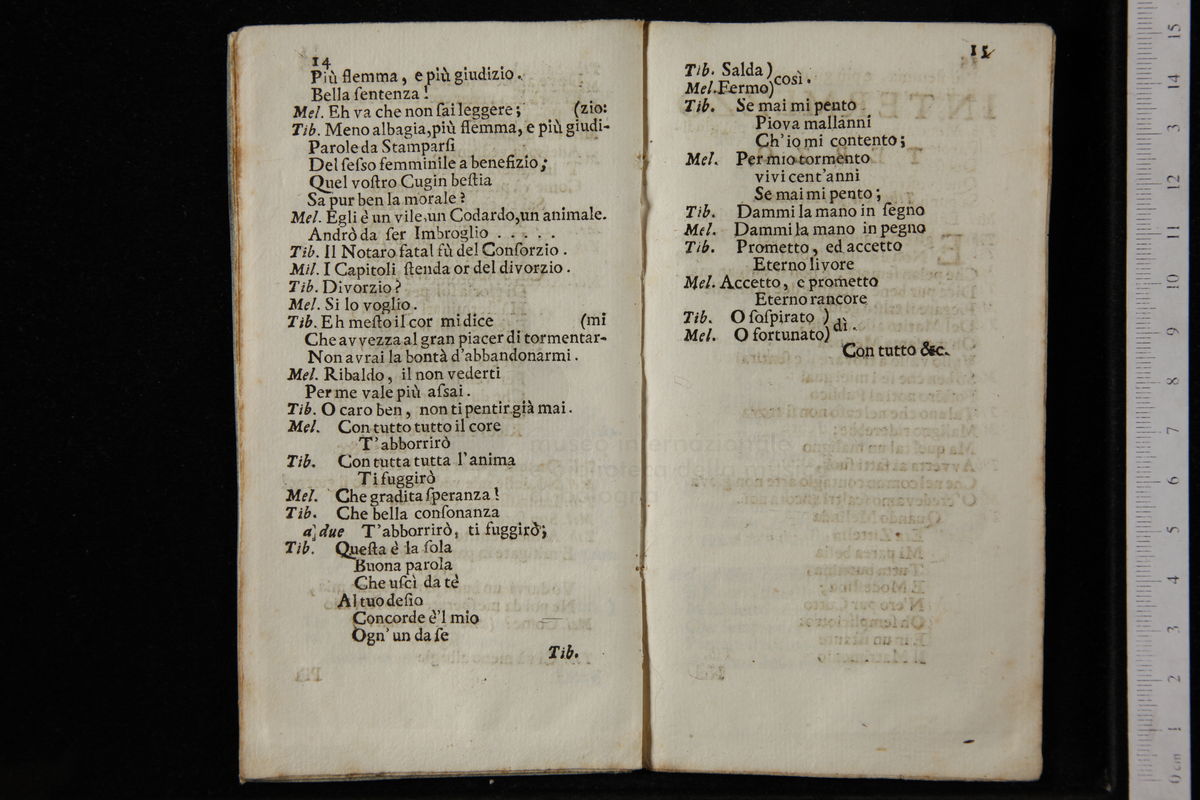 14
Più flemma, e più giudizio.
Bella ſentenza!
Mel. Eh va che non ſai leggere; (zio:
Tib. Meno albagia, più flemma, e più giudi-
Parole da Stamparſi
Del ſeſso femminile a benefizio;
Quel voſtro Cugin beſtia
Sa pur ben la morale?
Mel. Egli è un vile, un Codardo, un animale.
Andrò da ſer Imbroglio . . . . .
Tib. Il Notaro fatal fù del Conſorzio.
Mil. I Capitoli ſtenda or del divorzio.
Tib. Divorzio?
Mel. Si lo voglio.
Tib. Eh meſto il cor mi dice (mi
Che avvezza al gran piacer di tormentar-
Non avrai la bontà d'abbandonarmi.
Mel. Ribaldo, il non vederti
Per me vale più aſsai.
Tib. O caro ben, non ti pentir già mai.
Mel. Con tutto tutto il core
T'abborrirò
Tib. Con tutta tutta l'anima
Ti fuggirò
Mel. Che gradita ſperanza!
Tib. Che bella conſonanza
a due T'abborrirò, ti fuggirò;
Tib. Queſta è la ſola
Buona parola
Che uſcì da tè
Al tuo deſio
Concorde è'l mio
Ogn' un da ſe
Tib.
15
Tib. Salda)
così.
Mel. Fermo)
Tib. Se mai mi pento
Piova mallanni
Ch'io mi contento;
Mel. Per mio tormento
vivi cent'anni
Se mai mi pento;
Tib. Dammi la mano in ſegno
Mel. Dammi la mano in pegno
Tib. Prometto, ed accetto
Eterno livore
Mel. Accetto, e prometto
Eterno rancore
Tib. O ſoſpirato )
dì.
Mel. O fortunato)
Con tutto &c.
museo internazionale
e biblioteca della musica
di bologna
15
14
13
12
11
10
9
8
7
6
5
4
3
2
1
0 cm